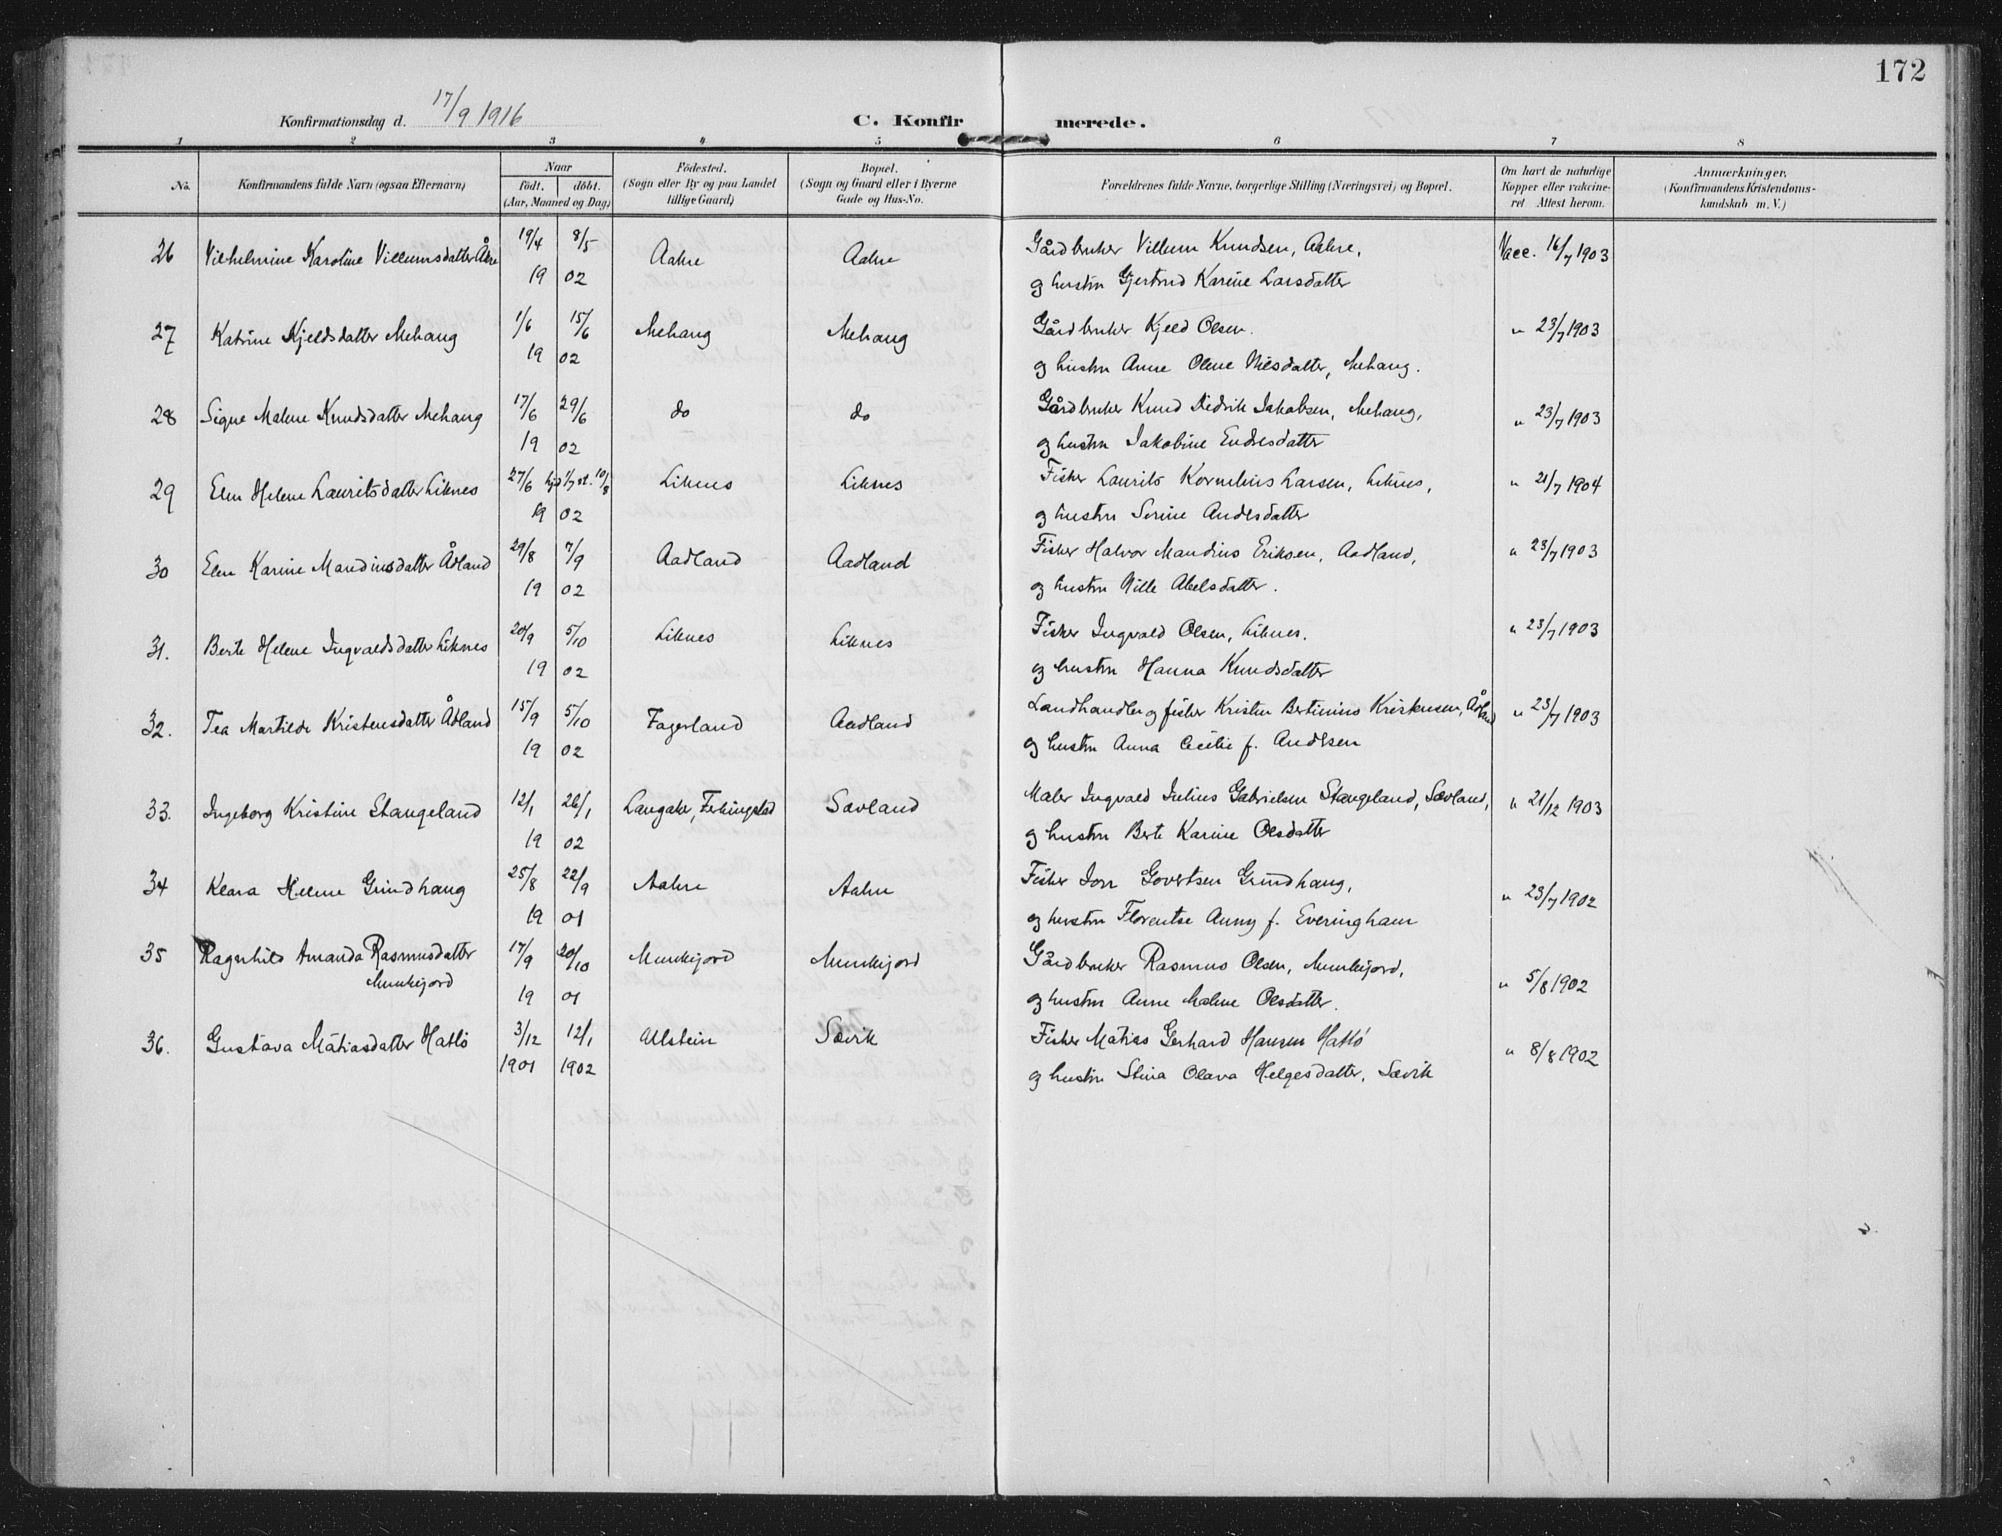 172
Konfirmationsdag d. 17/9 1916
C. Konfirmerede.
1 2 3 4 5 6 7 8
No. Konfirmandens fulde Navn (ogsaa Efternavn) Naar født. døbt. (Aar, Maaned og Dag) Födested. (Sogn eller By og paa Landet tillige Gaard) Bopæl. (Sogn og Gaard eller i Byerne Gade og Hus-No. Forældrenes fulde Navne, borgerlige Stilling (Næringsvei) og Bopæl. Om havt de naturlige Kopper eller vakcineret. Attest herom. Anmærkninger. (Konfirmandens Kristendomskundskab m. V.)
26 Vilhelmine Karoline Villumsdatter Åkre 19/4 8/5 Aakre Aakre Gårdbruker Villum Knudsen, Aakre, Vacc. 16/7 1903
19 02 og hustru Gjertrud Karine Larsdatter
27 Katrine Kjeldsdatter Mehaug 1/6 15/6 Mehaug Mehaug Gårdbruker Kjeld Olsen. " 23/7 1903
19 02 og hustru Anne Oline Nilsdatter, Mehaug.
28 Signe Malene Knudsdatter Mehaug 17/6 29/6 do do Gårdbruker Knud Didrik Jakobsen, Mehaug, " 23/7 1903
19 02 og hustru Jakobine Endresdatter
29 Elen Helene Lauritsdatter Liknes 27/6 hjd 1/7 st. 10/8 Liknes Liknes Fisker Laurits Kornelius Larsen, Liknes, " 21/7 1904
19 02 og hustru Serine Andersdatter
30 Elen Karine Mandiusdatter Ådland 29/8 7/9 Aadland Aadland Fisker Halvor Mandius Eriksen, Aadland, " 23/7 1903
19 02 og hustru Nille Abelsdatter.
31. Berte Helene Ingvaldsdatter Liknes 20/9 5/10 Liknes Liknes Fisker Ingvald Olsen, Liknes. " 23/7 1903
19 02 og hustru Hanna Knudsdatter
32. Tea Martilde Kristensdatter Ådland 15/9 5/10 Fagerland Aadland Landhandler og fisker Kristen Bertinius Kristensen, Ådland " 23/7 1903
19 02 og hustru Anna Cecilie f. Andersen
33. Ingeborg Kristine Stangeland 12/1 26/1 Langaker, Ferkingstad Sævland Maler Ingvald Julius Gabrielsen Stangeland, Sævland, " 21/12 1903
19 02 og hustru Berte Karine Olsdatter
34 Klara Helene Grindhaug 25/8 22/9 Aakre Aakre Fisker Jon Govertsen Grindhaug, " 23/7 1902
19 01 og hustru Florentse Anny f. Everingham
35 Ragnhild Amanda Rasmusdatter 17/9 20/10 Munkejord Munkejord Gårdbruker Rasmus Olsen, Munkejord, " 5/8 1902
Munkejord 19 01 og hustru Anne Malene Olsdatter.
36. Gustava Mátiasdatter Hatlö 3/12 12/1 Ulstein Sævik Fisker Matias Gerhard Hansen Hatlö " 8/8 1902
1901 1902 og hustru Stina Olava Helgesdatter, Sævik